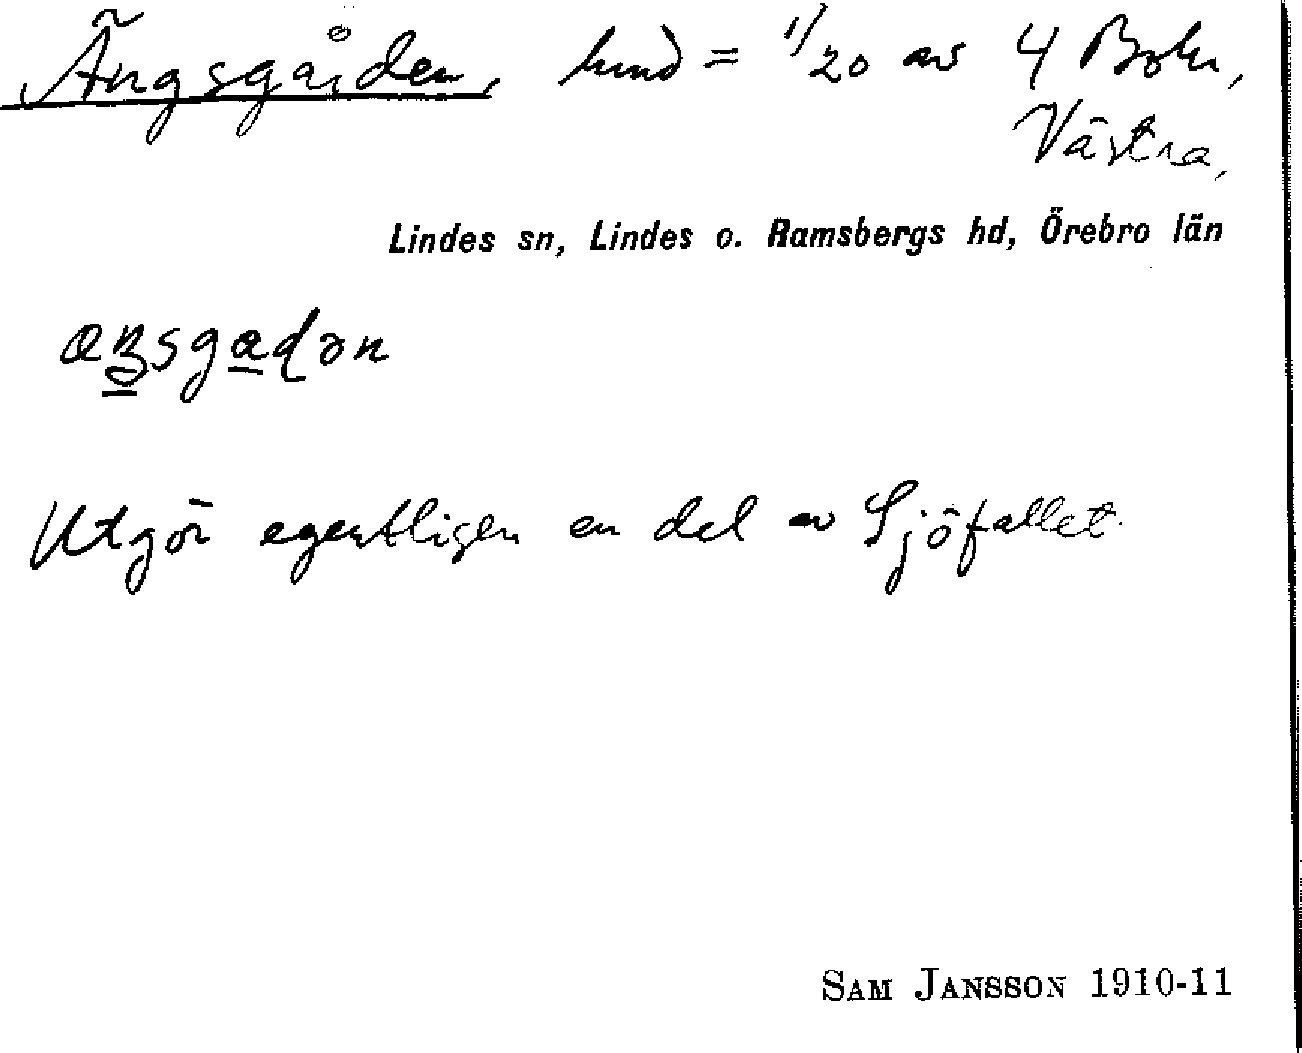 Ängsgården, hmd = 1/20 av 4 Bohr,
Västra,
Lindes sn, Lindes o. Ramsbergs hd, Örebro län
Utgör egentligen en del av Sjöfallet.
SAM JANSSON 1910-11